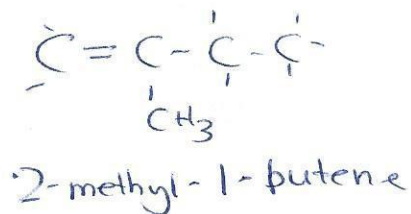 C = C - C - C -
CH3
2-methyl-1-butene